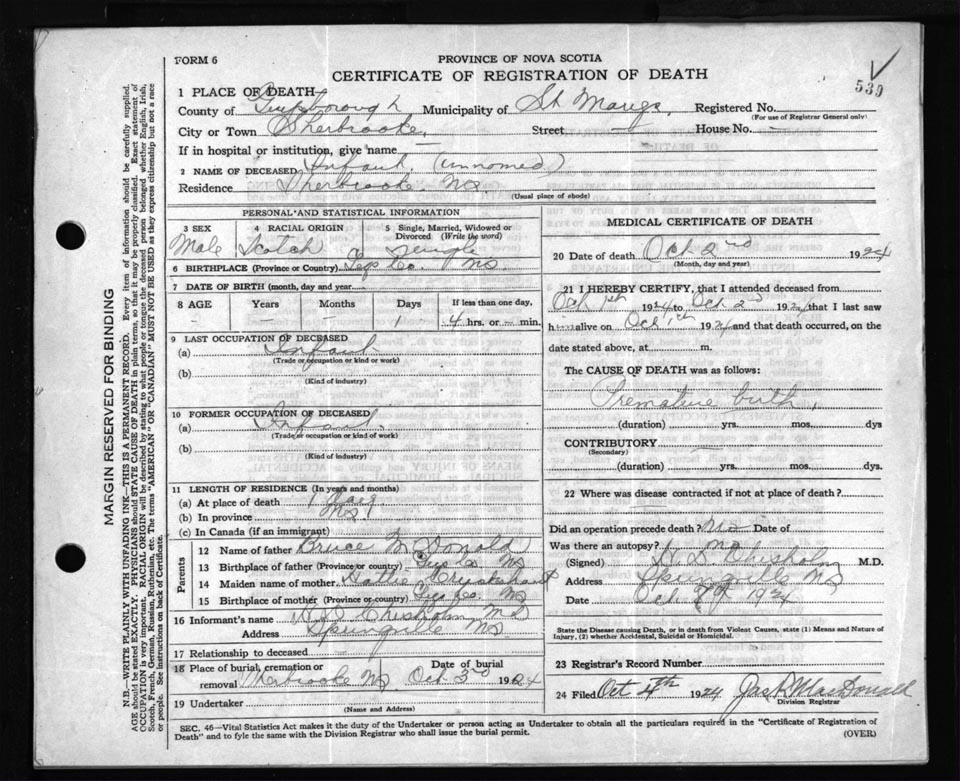 FORM 6
PROVINCE OF NOVA SCOTIA
CERTIFICATE OF REGISTRATION OF DEATH
539
1 PLACE OF DEATH
County of Guysborough Municipality of St Marys Registered No.
(For use of Registrar General only)
City or Town Sherbrooke, Street — House No. —
If in hospital or institution, give name —
2 NAME OF DECEASED Infant (unnamed)
Residence Sherbrooke NS.
(Usual place of abode)
PERSONAL AND STATISTICAL INFORMATION
3 SEX 4 RACIAL ORIGIN 5 Single, Married, Widowed or Divorced (Write the word)
Male Scotch Single
6 BIRTHPLACE (Province or Country) Guys Co. NS.
7 DATE OF BIRTH (month, day and year)
8 AGE Years Months Days If less than one day,
- - - 1 4 hrs. or — min.
9 LAST OCCUPATION OF DECEASED
(a) Infant
(Trade or occupation or kind or work)
(b)
(Kind of industry)
10 FORMER OCCUPATION OF DECEASED
(a) Infant
(Trade or occupation or kind of work)
(b)
(Kind of industry)
11 LENGTH OF RESIDENCE (In years and months)
(a) At place of death 1 Day
(b) In province NS
(c) In Canada (if an immigrant)
Parents
12 Name of father Bruce McDonald
13 Birthplace of father (Province or country) Guys Co NS
14 Maiden name of mother
15 Birthplace of mother (Province or country) Guys Co. NS
16 Informant's name Chisholm MD
Address NS
17 Relationship to deceased —
18 Place of burial, cremation or removal Sherbrooke NS Date of burial Oct 3rd 1924
19 Undertaker
(Name and Address)
MEDICAL CERTIFICATE OF DEATH
20 Date of death Oct 2nd 1924
(Month, day and year)
21 I HEREBY CERTIFY, that I attended deceased from
Oct 1st 1924 to Oct 2nd 1924 that I last saw
him alive on Oct 1st 1924 and that death occurred, on the
date stated above, at m.
The CAUSE OF DEATH was as follows:
Premature birth,
(duration) yrs. mos. dys
CONTRIBUTORY
(Secondary)
(duration) yrs. mos. dys.
22 Where was disease contracted if not at place of death?
Did an operation precede death? No Date of
Was there an autopsy? No
(Signed) Chisholm M.D.
Address NS
Date Oct 1924
State the Disease causing Death, or in death from Violent Causes, state (1) Means and Nature of
Injury, (2) whether Accidental, Suicidal or Homicidal.
23 Registrar's Record Number
24 Filed Oct 4th 1924 Jas R MacDonald
Division Registrar
SEC. 46—Vital Statistics Act makes it the duty of the Undertaker or person acting as Undertaker to obtain all the particulars required in the "Certificate of Registration of
Death" and to fyle the same with the Division Registrar who shall issue the burial permit.
(OVER)
MARGIN RESERVED FOR BINDING
N.B.—WRITE PLAINLY WITH UNFADING INK—THIS IS A PERMANENT RECORD. Every item of information should be carefully supplied.
AGE should be stated EXACTLY. PHYSICIANS should STATE CAUSE OF DEATH in plain terms, so that it may be properly classified. Exact statement of
OCCUPATION is very important. RACIAL ORIGIN will be described by stating to what people or tongue the deceased person belonged whether English, Irish,
Scotch, French, German, Russian, Ruthenian, etc. The terms "AMERICAN" OR "CANADIAN" MUST NOT BE USED as they express citizenship but not a race
or people. See instructions on back of Certificate.